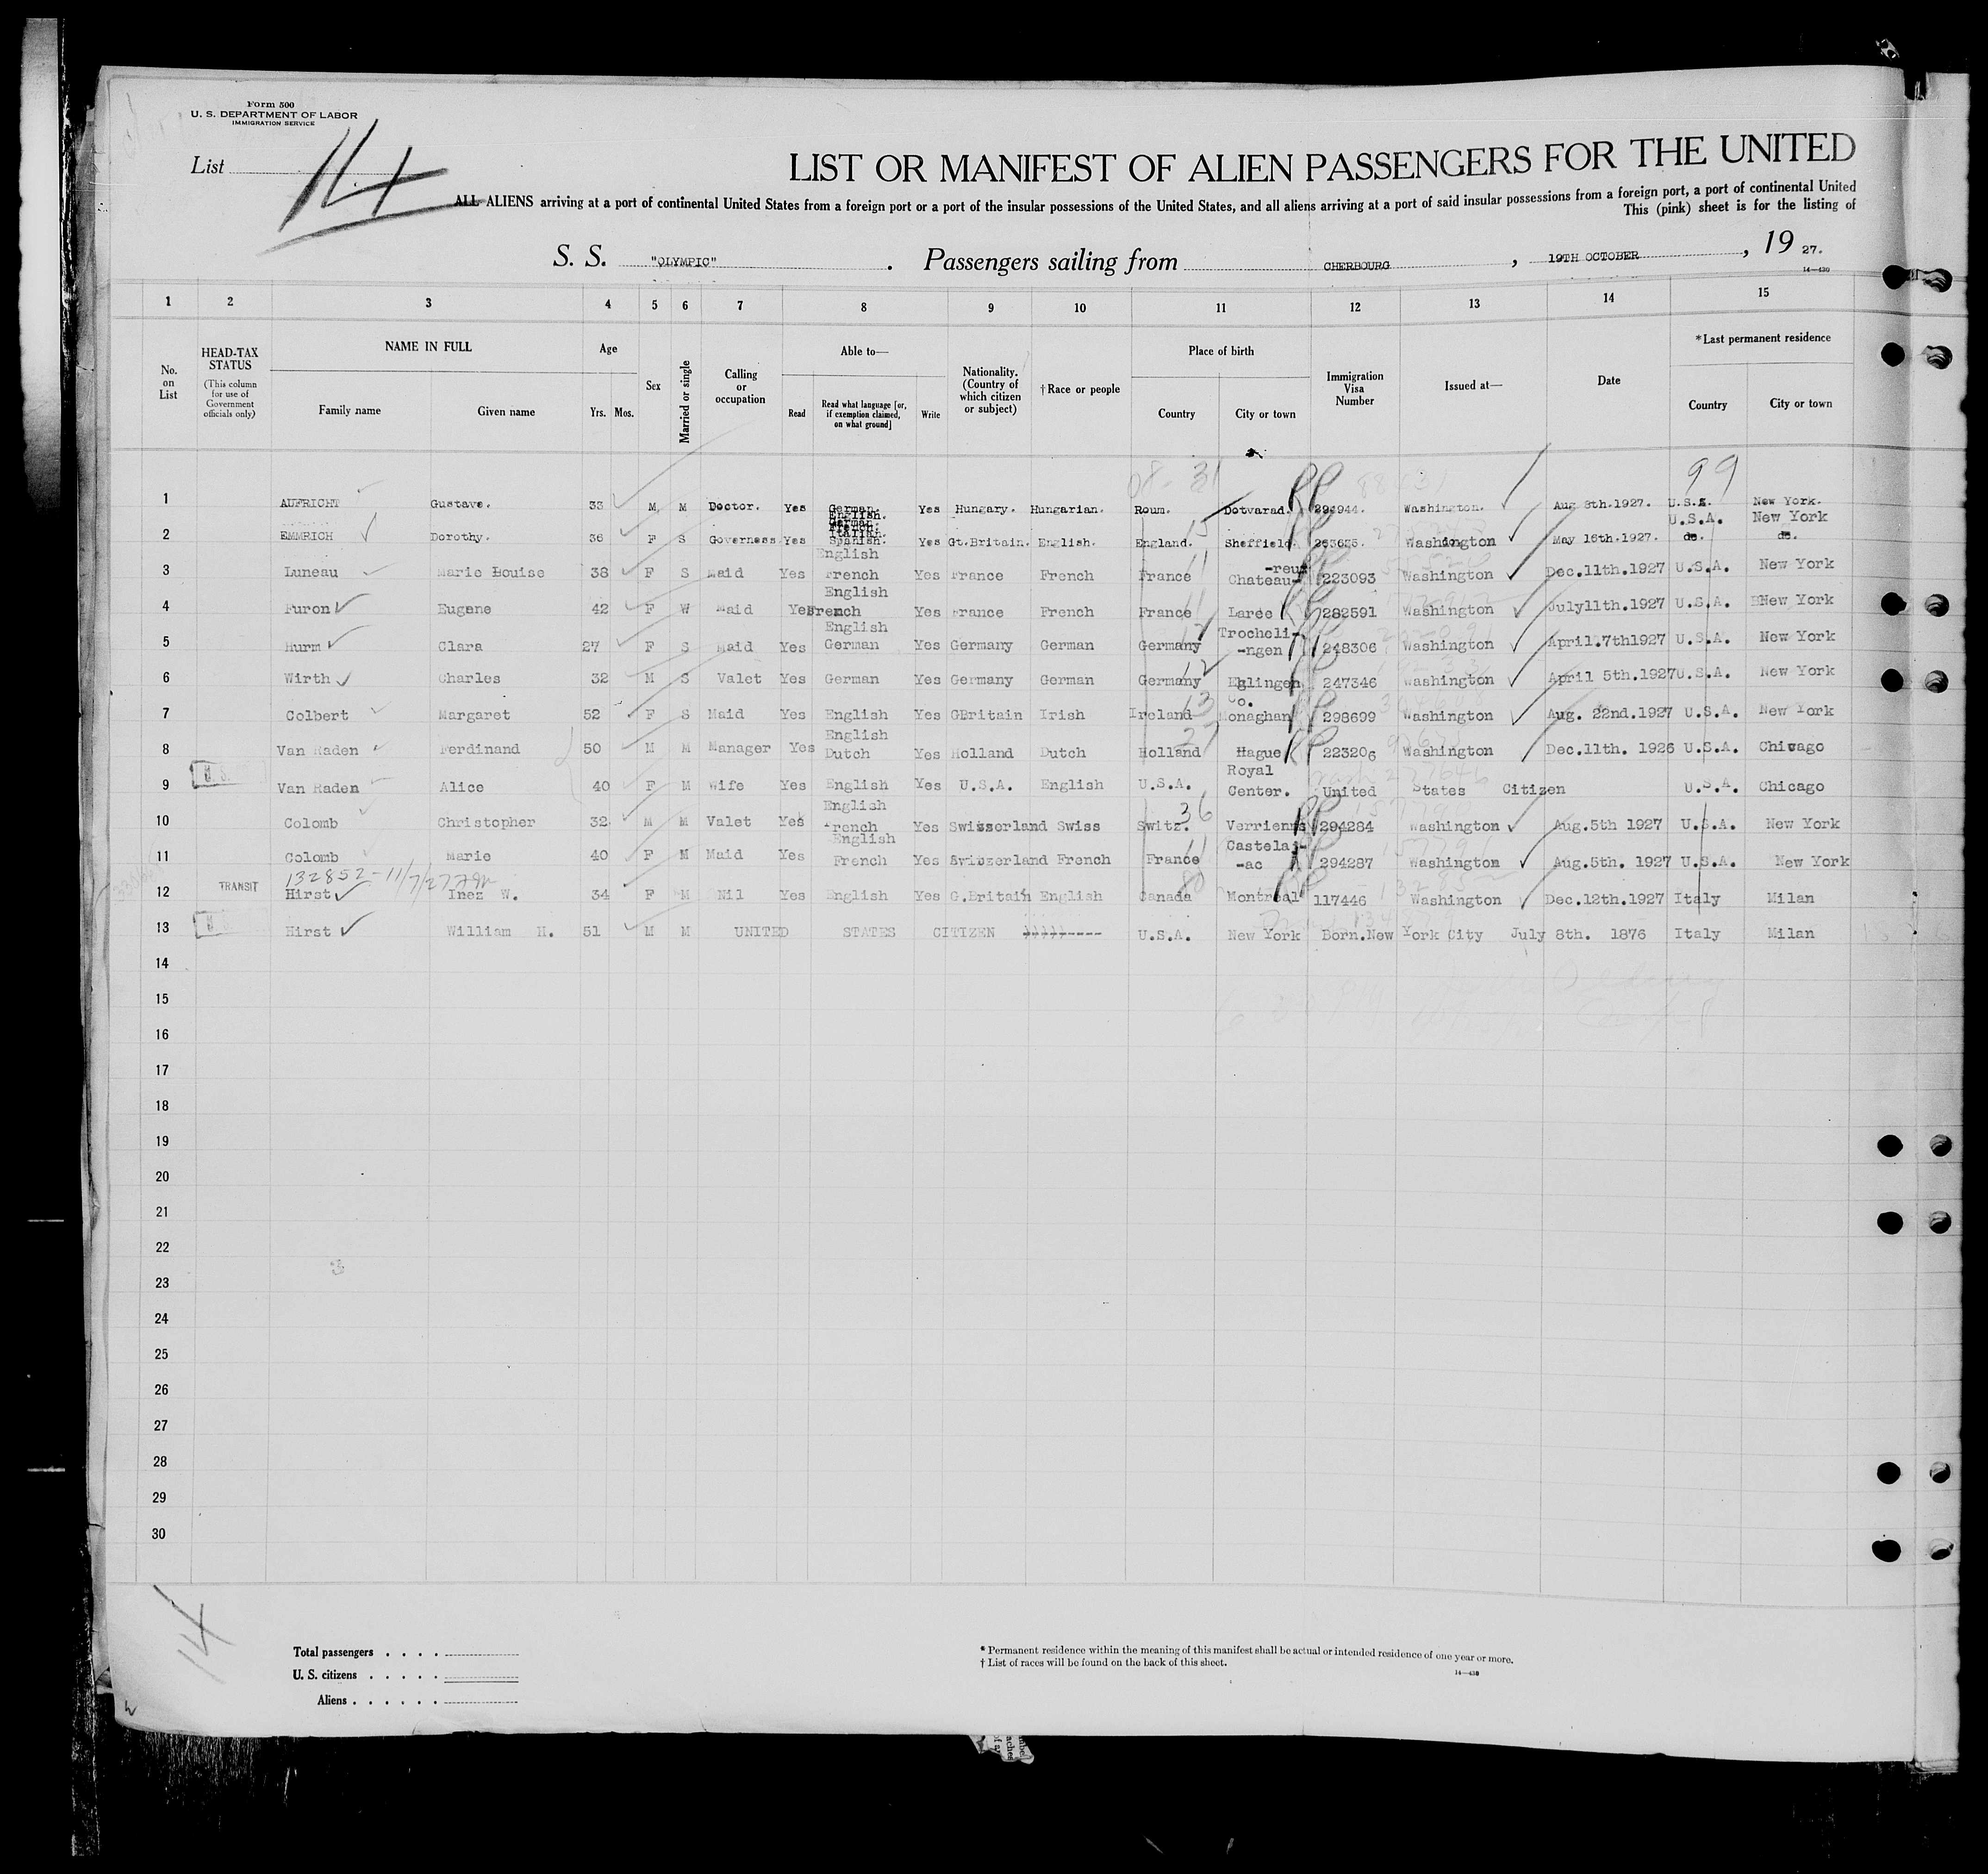 Form 500
U. S. DEPARTMENT OF LABOR
IMMIGRATION SERVICE
List 14
LIST OR MANIFEST OF ALIEN PASSENGERS FOR THE UNITED
ALL ALIENS arriving at a port of continental United States from a foreign port or a port of the insular possessions of the United States, and all aliens arriving at a port of said insular possessions from a foreign port, a port of continental United
This (pink) sheet is for the listing of
S. S. "OLYMPIC" . Passengers sailing from CHERBOURG , 19TH OCTOBER , 19 27.
14—430
1 2 3 4 5 6 7 8 9 10 11 12 13 14 15
No. on List
HEAD-TAX STATUS
(This column for use of Government officials only)
NAME IN FULL
Family name Given name
Age
Yrs. Mos.
Sex
Married or single
Calling or occupation
Able to—
Read
Read what language [or, if exemption claimed, on what ground]
Write
Nationality. (Country of which citizen or subject)
† Race or people
Place of birth
Country City or town
Immigration Visa Number
Issued at—
Date
*Last permanent residence
Country City or town
99
1 AUFRICHT Gustave. 33 M M Doctor. Yes German. English. Yes Hungary. Hungarian. Roum. Dotvarad. 294944. Washington. Aug 8th.1927. U.S.A. New York.
U.S.A. New York
2 EMMRICH Dorothy. 36 F S Governess Yes German. French. Italian. Spanish. Yes Gt.Britain. English. England. Sheffield. 263635. Washington May 16th.1927. do. do.
3 Luneau Marie Louise 38 F S Maid Yes English French Yes France French France Chateau- -reux 223093 Washington Dec.11th.1927 U.S.A. New York
4 Furon Eugene 42 F W Maid Yes English French Yes France French France Laree 282591 Washington July11th.1927 U.S.A. New York
5 Hurm Clara 27 F S Maid Yes English German Yes Germany German Germany Trocheli- -ngen 248306 Washington April.7th1927 U.S.A. New York
6 Wirth Charles 32 M S Valet Yes German Yes Germany German Germany Eglingen 247346 Washington April 5th.1927 U.S.A. New York
7 Colbert Margaret 52 F S Maid Yes English Yes GBritain Irish Ireland Co. Monaghan 298699 Washington Aug. 22nd.1927 U.S.A. New York
8 Van Raden Ferdinand 50 M M Manager Yes English Dutch Yes Holland Dutch Holland Hague 223206 Washington Dec.11th. 1926 U.S.A. Chivago
9 Van Raden Alice 40 F M Wife Yes English Yes U.S.A. English U.S.A. Royal Center. United States Citizen U.S.A. Chicago
10 Colomb Christopher 32 M M Valet Yes English French Yes Swisserland Swiss Switz. Verrienns 294284 Washington Aug.5th 1927 U.S.A. New York
11 Colomb Marie 40 F M Maid Yes English French Yes Switzerland French France Castelai- -ac 294287 Washington Aug.5th. 1927 U.S.A. New York
132852-11/7/27
12 TRANSIT Hirst Inez W. 34 F M Nil Yes English Yes G.Britain English Canada Montreal 117446 Washington Dec.12th.1927 Italy Milan
13 Hirst William H. 51 M M UNITED STATES CITIZEN )))))----- U.S.A. New York Born.New York City July 8th. 1876 Italy Milan
14
15
16
17
18
19
20
21
22
23
24
25
26
27
28
29
30
14
Total passengers . . . .
U. S. citizens . . . . .
Aliens . . . . . .
* Permanent residence within the meaning of this manifest shall be actual or intended residence of one year or more.
† List of races will be found on the back of this sheet.
14—430